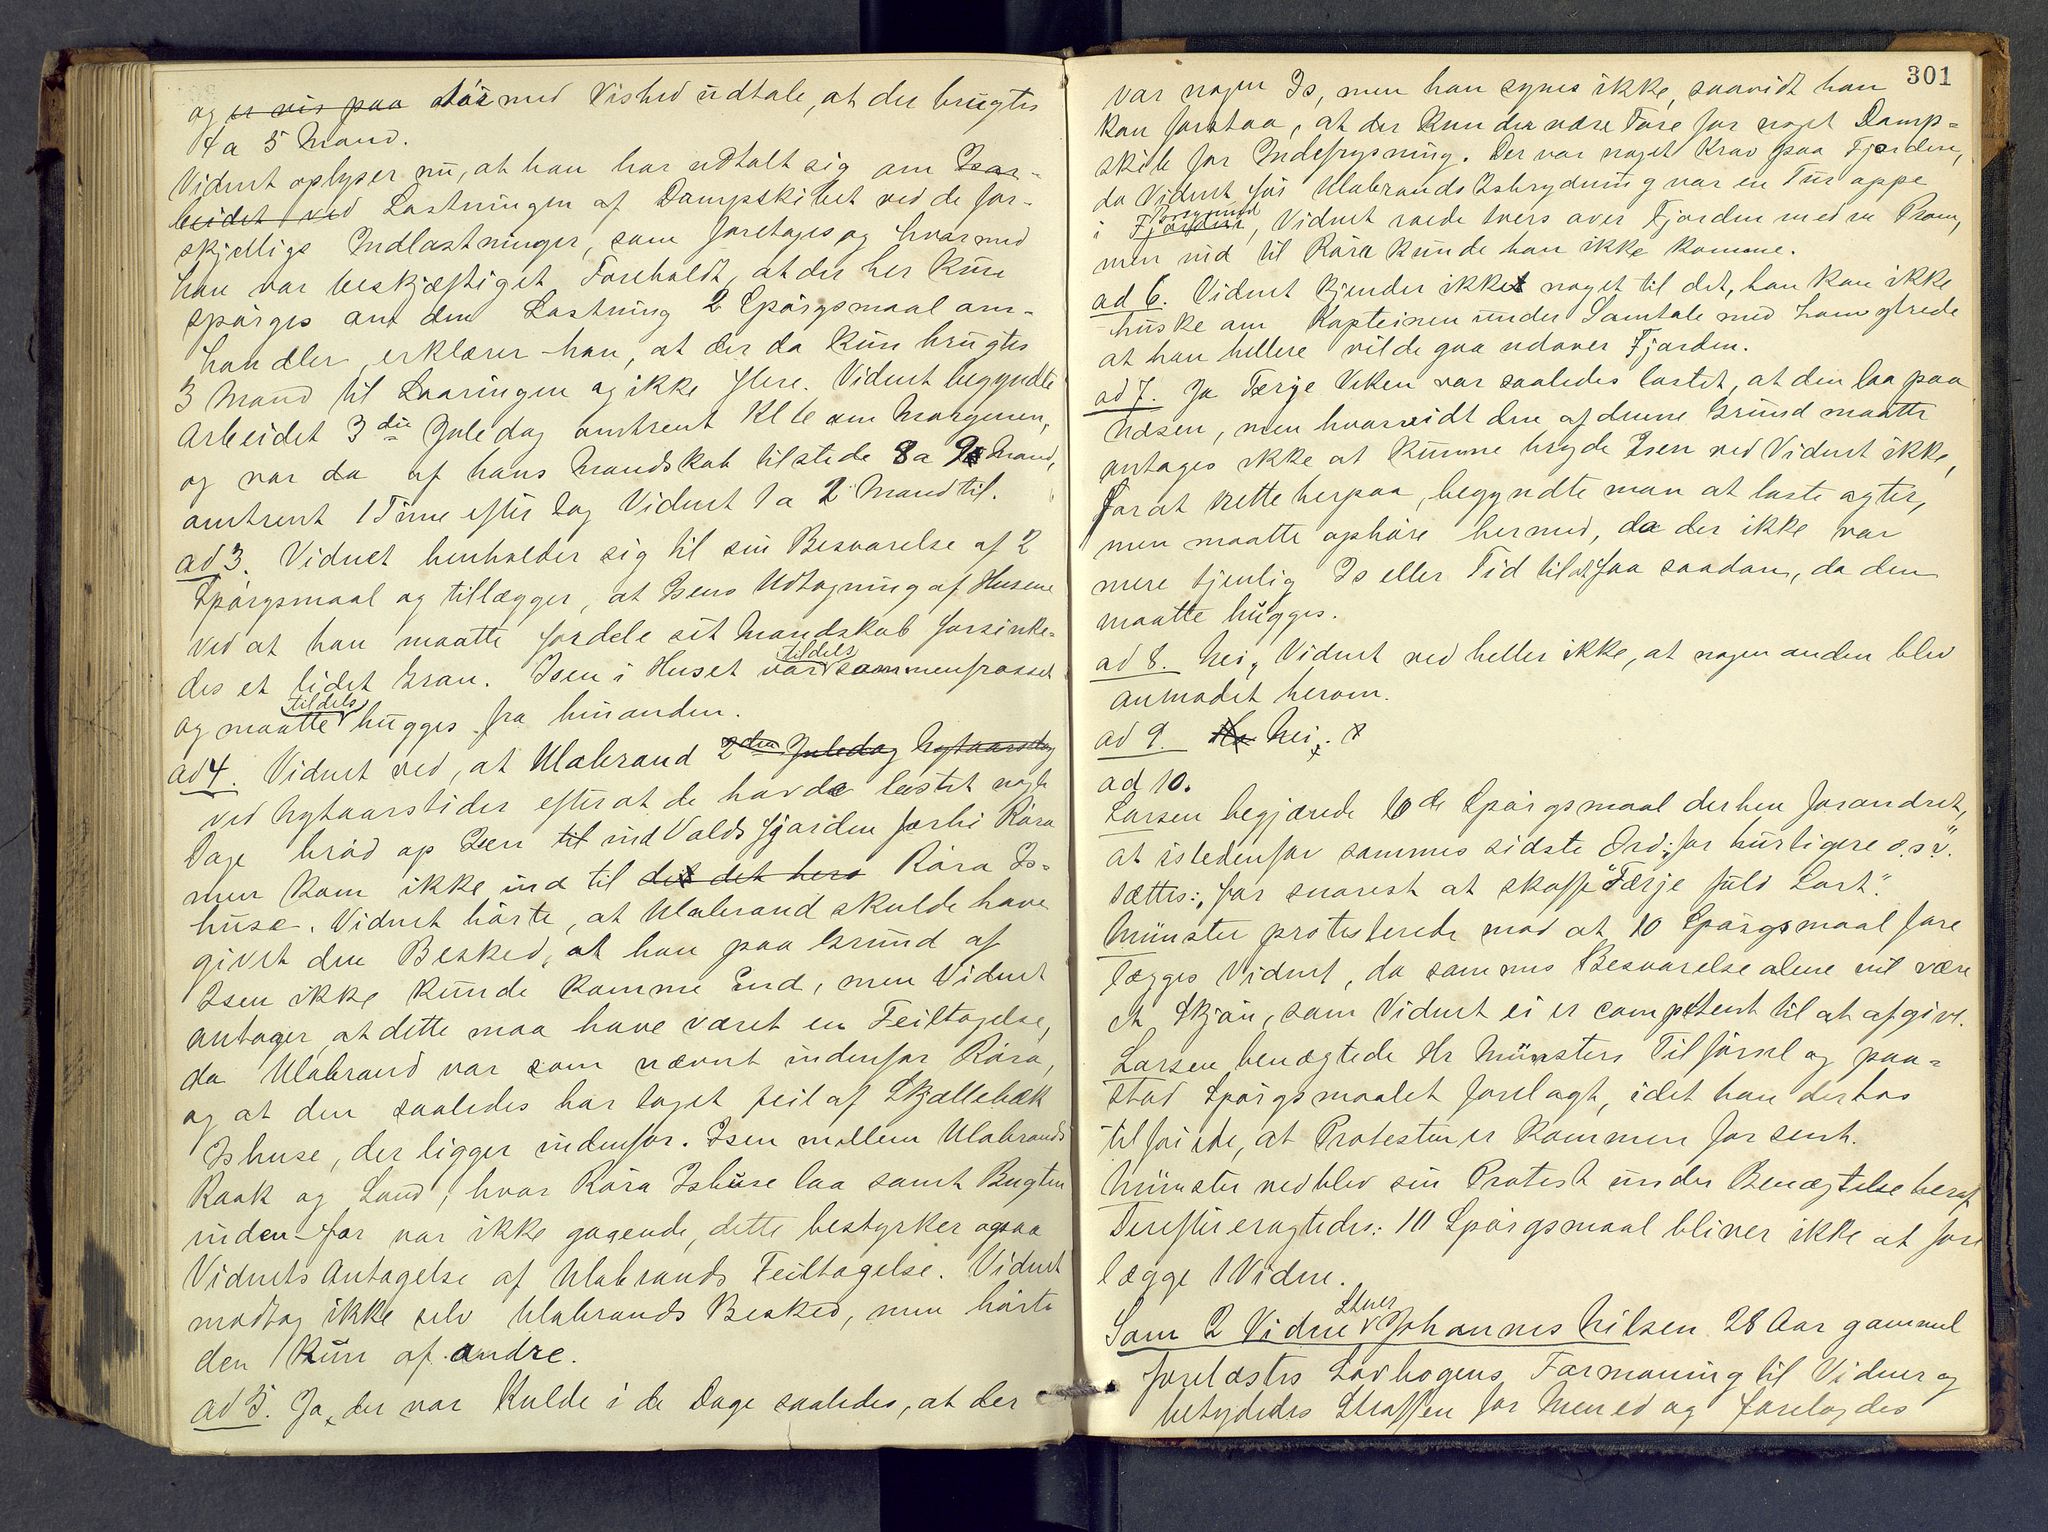 og er vis paa tör med Vished udtale, at der brugtes
4 a 5 Mand.
Vidnet oplyser nu, at han har udtalt sig om Isar-
beidet ved Lastningen af Dampskibet ved de for-
skjellige Indlastninger, som foretoges og hvormed
han var beskjæftiget. Foreholdt, at der her kun
spörges om den Lastning 2 Spörgsmaal om-
handler, erklærer han, at der da kun brugtes
3 Mand til Laaringen og ikke flere. Vidnet begyndte
Arbeidet 3die Juledag omtrent Kl 6 om Morgenen,
og var da af hans Mandskab tilstede 8 a 9 Mand,
omtrent 1 Time efter tog Vidnet 1 a 2 Mand til.
ad 3. Vidnet henholder sig til sin Besvarelse af 2
Spörgsmaal og tillægger, at Isens Udtagning af Husene
ved at han maatte fordele sit Mandskab forsinke-
des et lidet Gran. Isen i Huset var tildels sammenfrosset
og maatte tildels hugges fra hinanden.
ad 4. Vidnet ved, at Ulabrand 2den Juledag Nytaarsdag
ved Nytaarstider efterat de havde lastet nogle
Dage bröd op Isen til ind Voldsfjorden forbi Röra
men kom ikke ind til det det hero Röra Is-
huse. Vidnet hörte, at Ulabrand skulde have
givet den Besked, at han paa Grund af
Isen ikke kunde komme ind, men Vidnet
antager, at dette maa have været en Feiltagelse,
da Ulabrand var som nævnt indenfor Röra,
og at den saaledes har taget feil af Skjællebæk
Ishuse, der ligger indenfor. Isen mellem Ulabrands
Raak og Land, hvor Röra Ishuse laa samt Bugten
inden-for var ikke gagende, dette bestyrker ogsaa
Vidnets Antagelse af Ulabrands Feiltagelse. Vidnet
modtog ikke selv Ulabrands Besked, men hörte
den kun af andre.
ad 5. Ja, der var Kulde i de Dage saaledes, at der
301
var nogen Is, men han synes ikke, saavidt han
kan forstaa, at der kunde være Fare for noget Damp-
skib for Indefrysning. Der var noget Krav paa Fjorden,
da Vidnet för Ulabrands Isbrydning var en Tur oppe
i Fjorden Porsgrund, Vidnet roede tvers over Fjorden med en Pram,
men ind til Röra kunde han ikke komme.
ad 6. Vidnet kjender ikke noget til det, han kan ikke
huske om Kapteinen under Samtale med ham ytrede
at han hellere vilde gaa udover Fjorden.
ad 7. Ja Terje Viken var saaledes lastet, at den laa paa
Næsen, men hvorvidt den af denne Grund maatte
antages ikke at kunne bryde Isen ved Vidnet ikke,
For at rette herpaa, begyndte man at laste agter,
men maatte ophöre hermed, da der ikke var
mere tjenlig Is eller Tid til at faa saadan, da den
maatte hugges.
ad 8. Nei, Vidnet ved heller ikke, at nogen anden blev
anmodet herom.
ad 9. Ha Nei.
ad 10.
Larsen begjærede 10de Spörgsmaal derhen forandret,
at istedenfor sammes sidste Ord: „for hurtigere o.s.v.“
sættes: „for snarest at skaffe Færje fuld Last.“
Münster protesterede mod at 10 Spörgsmaal fore
lægges Vidnet, da sammes Besvarelse alene vil være
et Skjön, som Vidnet ei er competent til at afgive.
Larsen benægtede Hr Münsters Tilförsel og paa-
stod Spörgsmaalet forelagt, idet han derhos
tilföiede, at Protesten er kommen for sent.
Münster vedblev sin Protest under Benægtelse heraf.
Derefter eragtedes: 10 Spörgsmaal bliver ikke at fore
lægge 1 Vidne.
Som 2 Vidne Stuer Johannes Nilsen 28 Aar gammel
forelæstes Lovbogens Formaning til Vidner og
betydedes Straffen for Mened og forelagdes